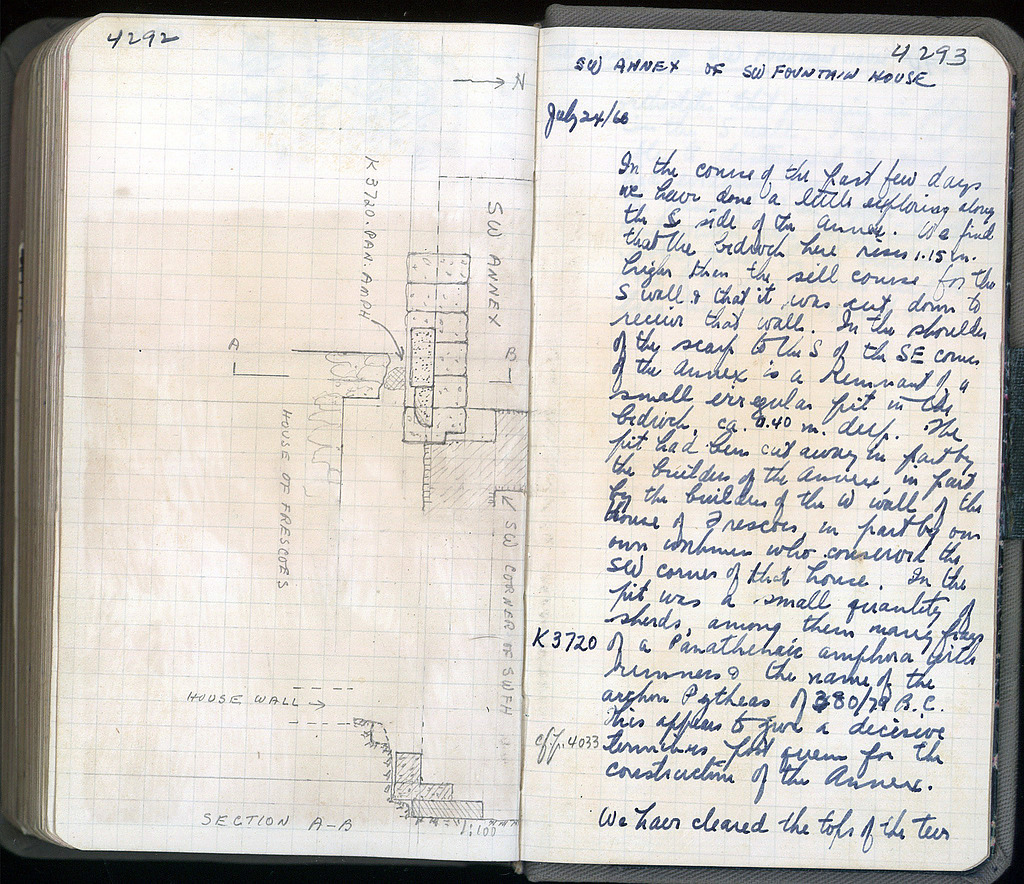 4292
N
K 3720. PAN. AMPH
SW ANNEX
A
B
HOUSE OF FRESCOES
SW CORNER OF SWFH
HOUSE WALL
SECTION A-B
1:100
4293
SW ANNEX OF SW FOUNTAIN HOUSE
July 24/66
In the course of the past few days
we have done a little exploring along
the S. side of the Annex. We find
that the bedrock here rises 1.15 m.
higher than the sill course for the
S wall & that it was cut down to
receive that wall. In the shoulder
of the scarp to the S of the SE corner
of the Annex is a Remnant of a
small irregular pit in the
bedrock, ca. 0.40 m. deep. The
pit had been cut away in part by
the builders of the Annex, in part
by the builders of the W wall of the
House of Frescoes, in part by our
own workmen who conserved the
SW corner of that house. In the
pit was a small quantity of
sherds, among them many frags
K3720 of a Panathenaic amphora with
runners & the name of the
archon Pytheas of 380/79 B.C.
This appears to give a decisive
cf. p. 4033 terminus post quem for the
construction of the Annex.
We have cleared the tops of the two